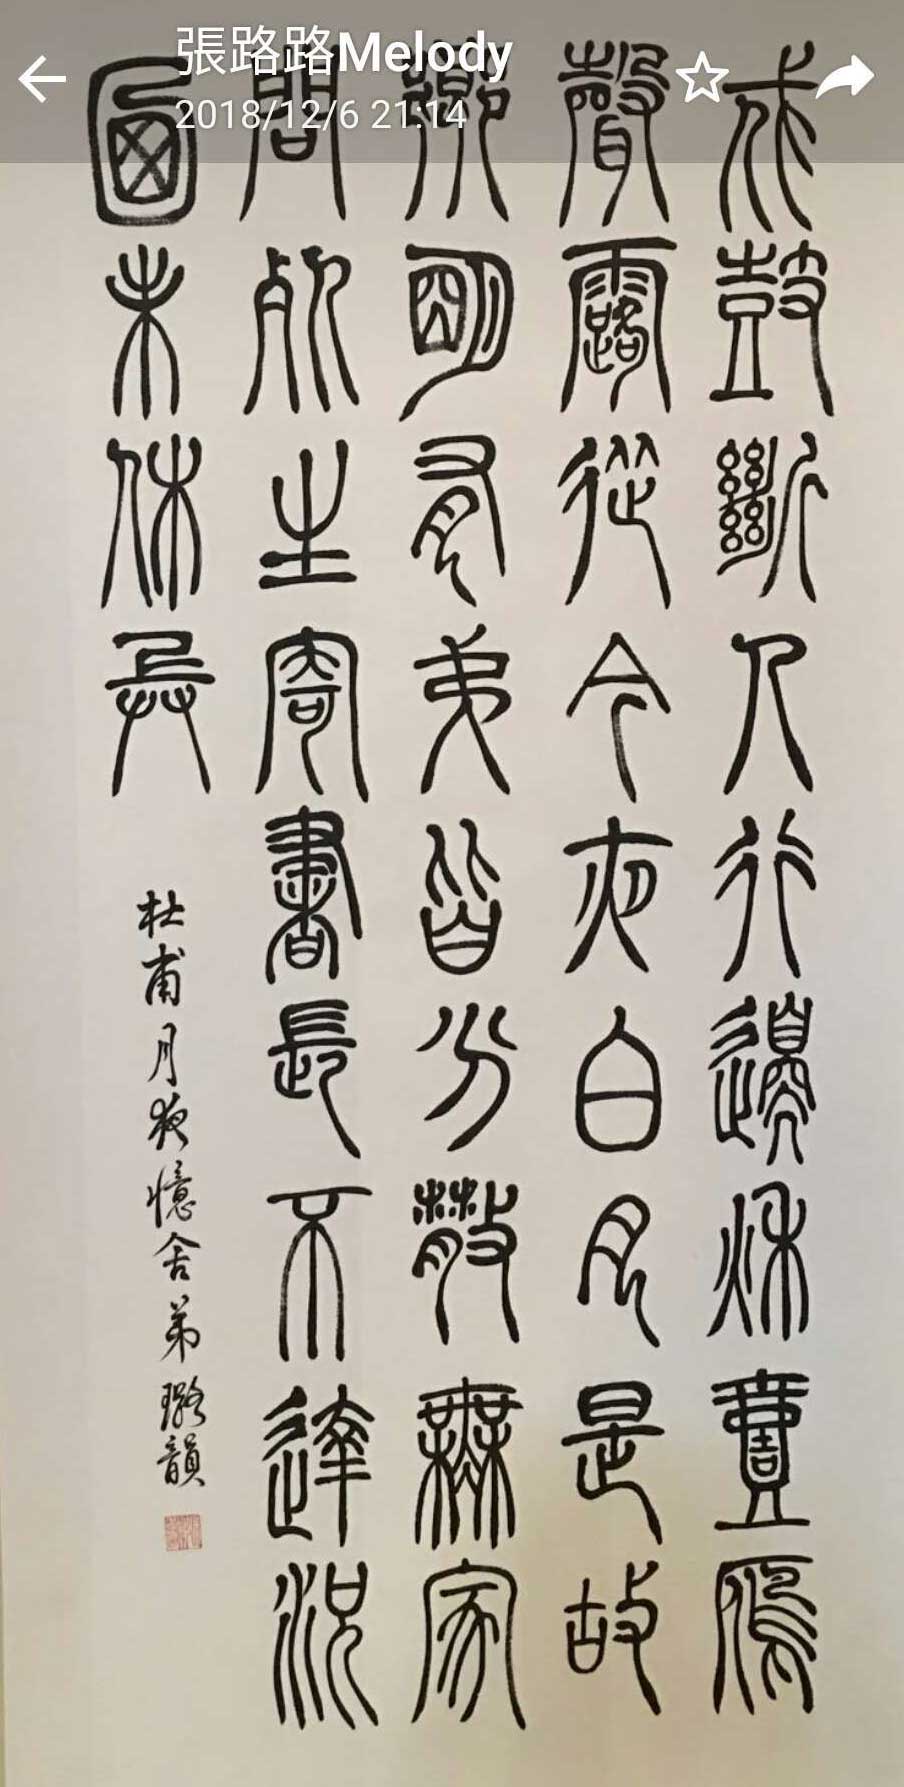 張路路Melody
2018/12/6 21:14
戍鼓斷人行邊秋壹鴈
聲露從今夜白月是故
鄉明有弟皆分散無家
問死生寄書長不達況
未休兵
杜甫月夜憶舍弟 璐韻